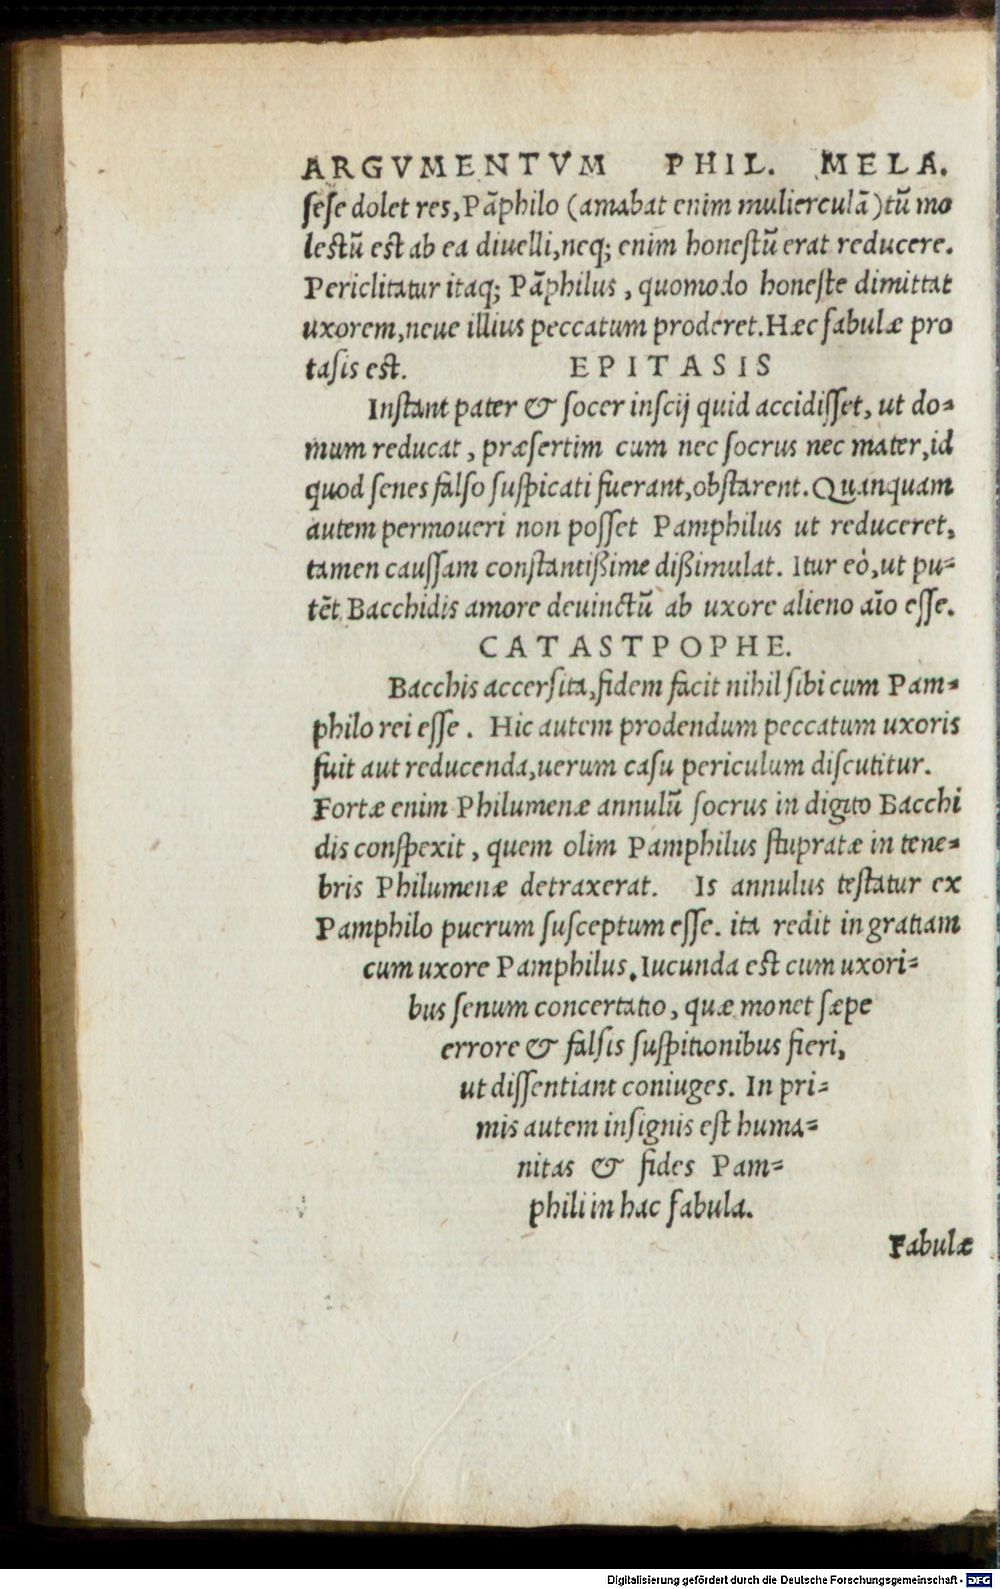 ARGVMENTVM PHIL. MELA.
seſe dolet res, Pãphilo (amabat enim mulierculã) tũ mo
leſtũ eſt ab ea diuelli, neq; enim honeſtũ erat reducere.
Periclitatur itaq; Pãphilus, quomodo honeſte dimittat
uxorem, neue illius peccatum proderet. Hæc fabulæ pro
taſis eſt. EPITASIS
Inſtant pater & ſocer inſcij quid accidiſſet, ut do⸗
mum reducat, præſertim cum nec ſocrus nec mater, id
quod ſenes falſo ſuſpicati fuerant, obſtarent. Quanquam
autem permoueri non poſſet Pamphilus ut reduceret,
tamen cauſſam conſtantißime dißimulat. Itur eò, ut pu⸗
tēt Bacchidis amore deuinctũ ab uxore alieno aīo eſſe.
CATASTPOPHE.
Bacchis accerſita, fidem facit nihil ſibi cum Pam⸗
philo rei eſſe. Hic autem prodendum peccatum uxoris
fuit aut reducenda, uerum caſu periculum diſcutitur.
Fortæ enim Philumenæ annulũ ſocrus in digito Bacchi
dis conſpexit, quem olim Pamphilus ſtupratæ in tene⸗
bris Philumenæ detraxerat. Is annulus teſtatur ex
Pamphilo puerum ſuſceptum eſſe. ita redit in gratiam
cum uxore Pamphilus. Iucunda eſt cum uxori⸗
bus ſenum concertatio, quæ monet ſæpe
errore & falſis ſuſpitionibus fieri,
ut diſſentiant coniuges. In pri⸗
mis autem inſignis eſt huma⸗
nitas & fides Pam⸗
phili in hac fabula.
Fabulæ
Digitalisierung gefördert durch die Deutsche Forschungsgemeinschaft - DFG